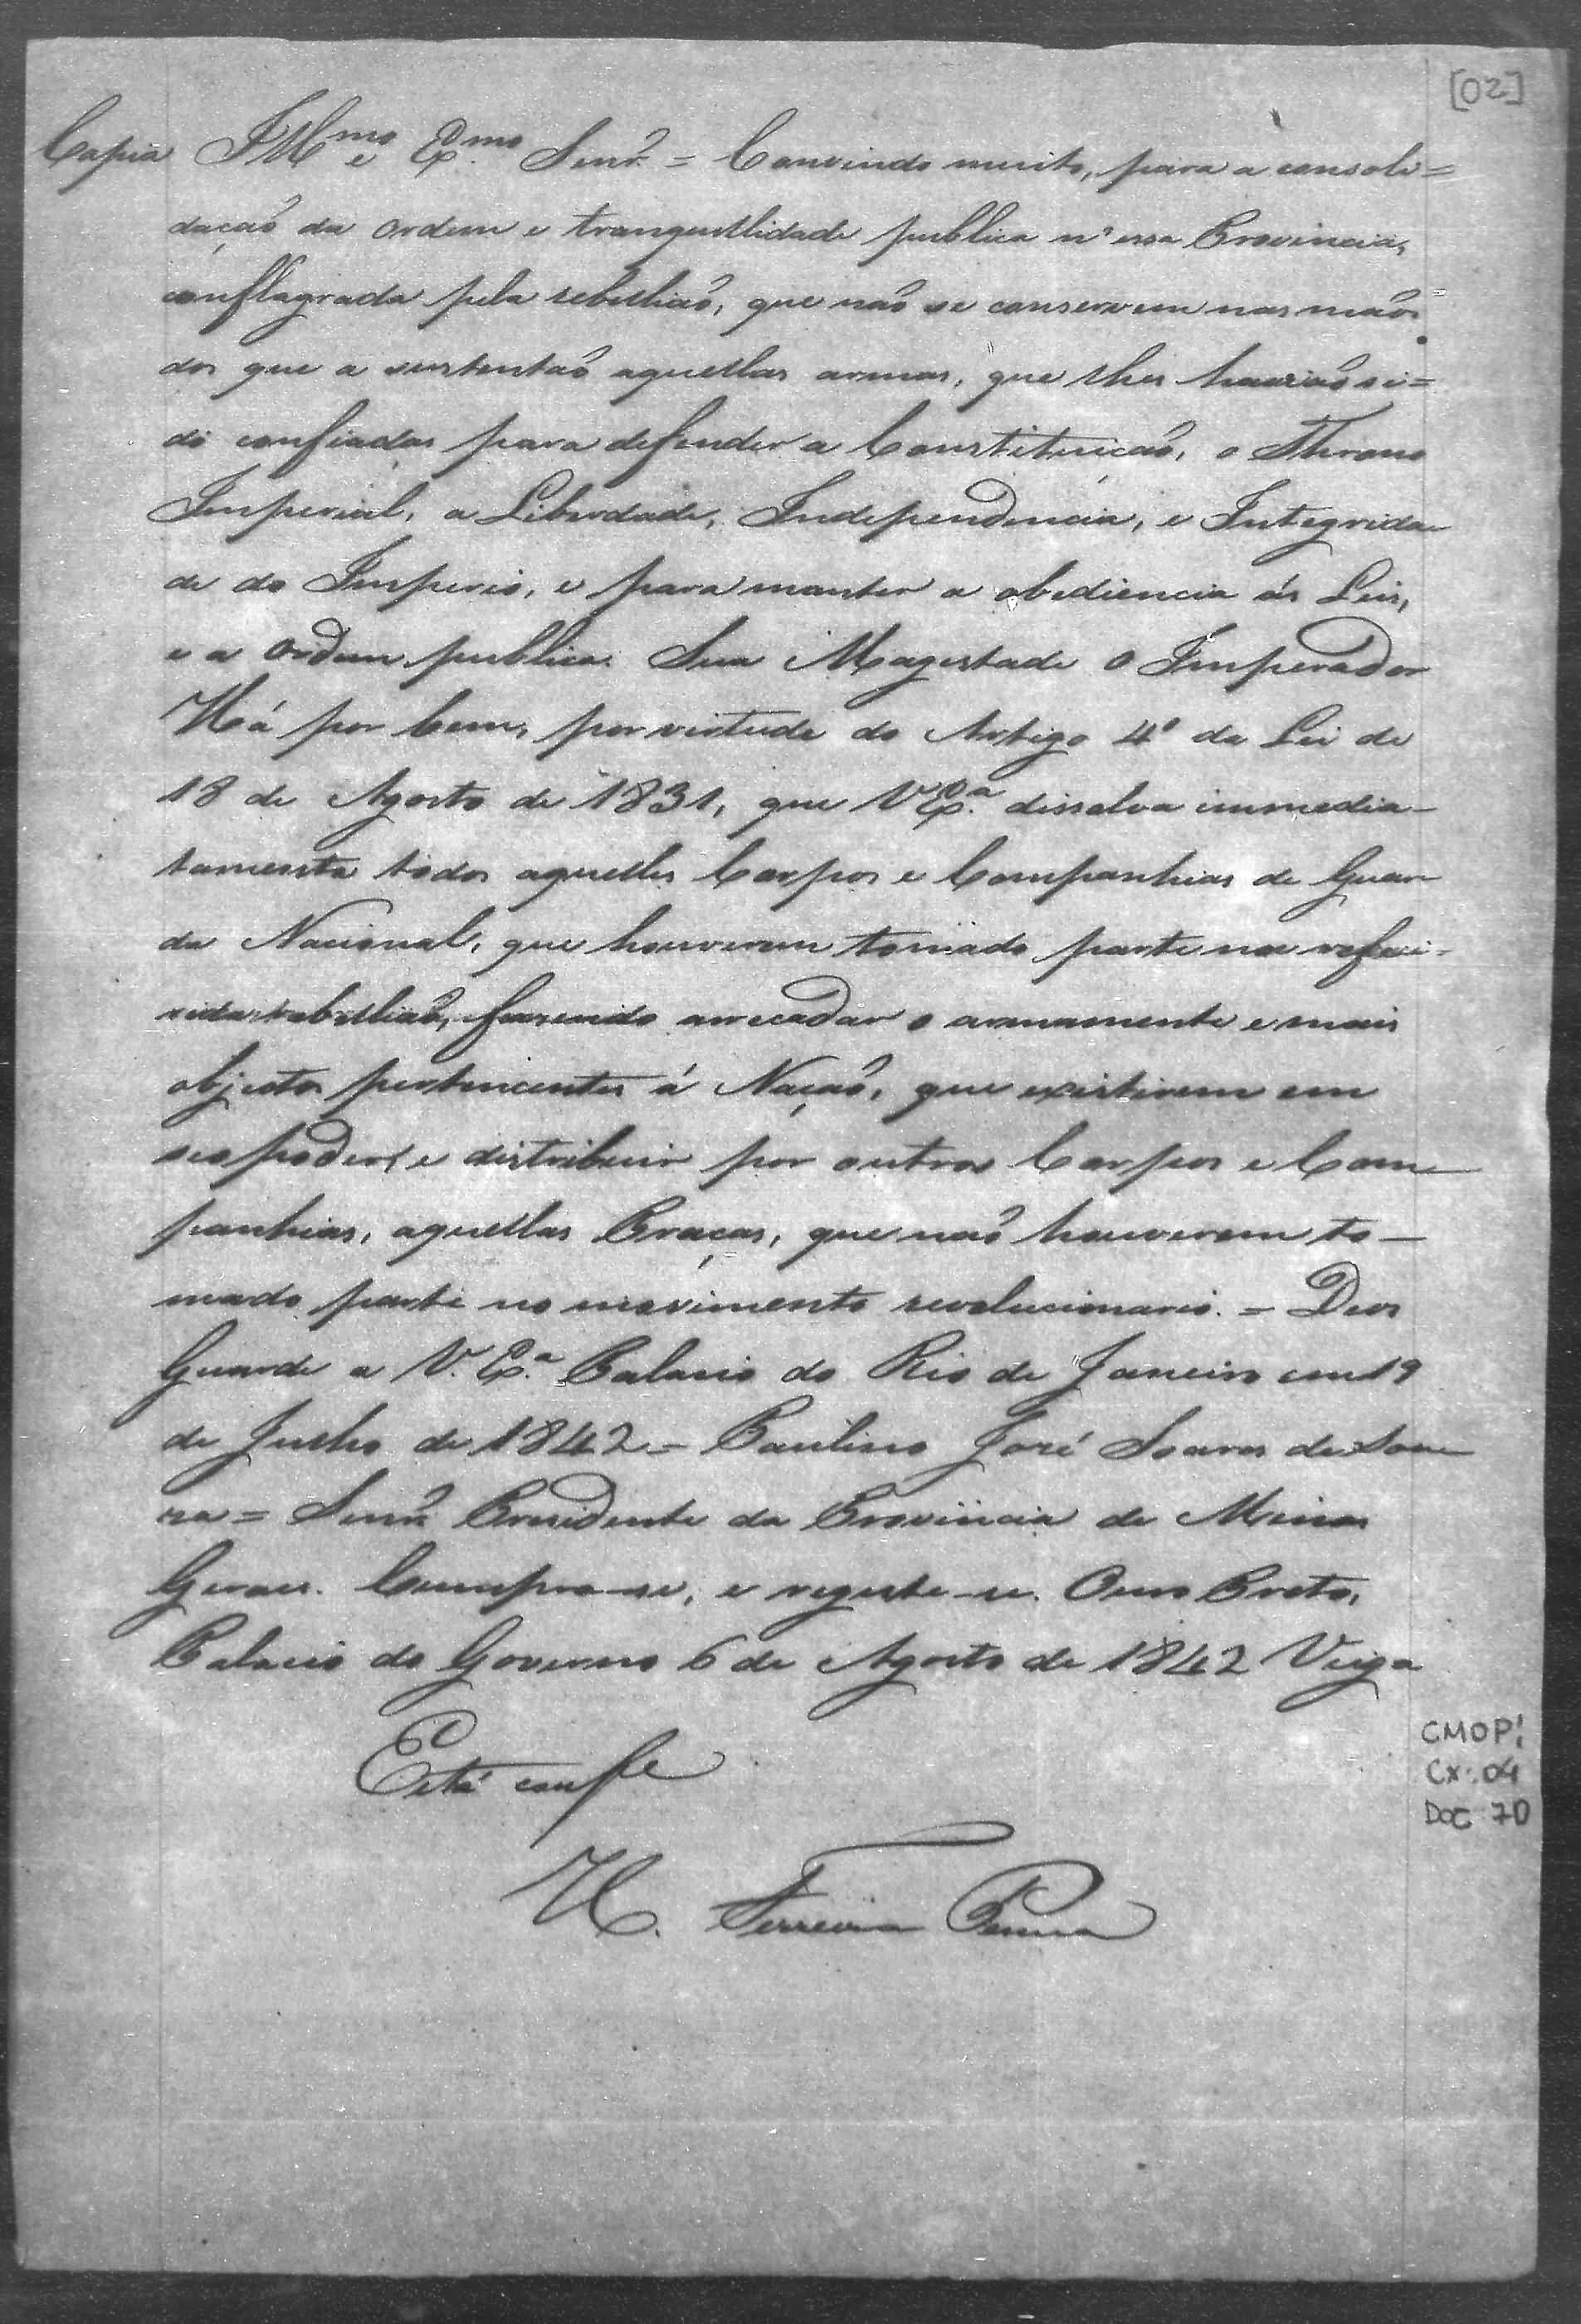 [02]
Copia Illmo e Exmo Senr. = Convindo muito, para a consoli=
dação da ordem e tranquillidade publica n'essa Provincia,
conflagrada pela rebellião, que não se conservem nas mãos
dos que a sustentão aquellas armas, que lhes havião si=
do confiadas para defender a Constituição, o Throno
Imperial, a Liberdade, Independencia, e Integrida
de do Imperio, e para manter a obediencia ás Leis,
e a ordem publica: Sua Magestade o Imperador
Há por bem, por virtude do Artigo 4º da Lei de
18 de Agosto de 1831, que V Exa. dissolva immedia-
tamente todos aquelles Corpos e Companhias de Guar
da Nacional, que houverem tomado parte na referi-
rida rebellião, fazendo arrecadar o armamento e mais
objectos pertencentes á Nação, que existirem em
seo poder, e distribuir por outros Corpos e Com
panhias, aquellas Praças, que não houverem to-
mado parte no movimento revolucionario. = Deos
Guarde a V. Exa. Palacio do Rio de Janeiro em 19
de Julho de 1842 = Paulino José Soares de Sou
za = Senr. Presidente da Provincia de Minas
Geraes. Cumpra-se, e registe-se. Ouro Preto,
Palacio do Governo 6 de Agosto de 1842 Veiga
Está confe
H. Ferreira Penna
CMOP!
Cx: 04
DOC 70